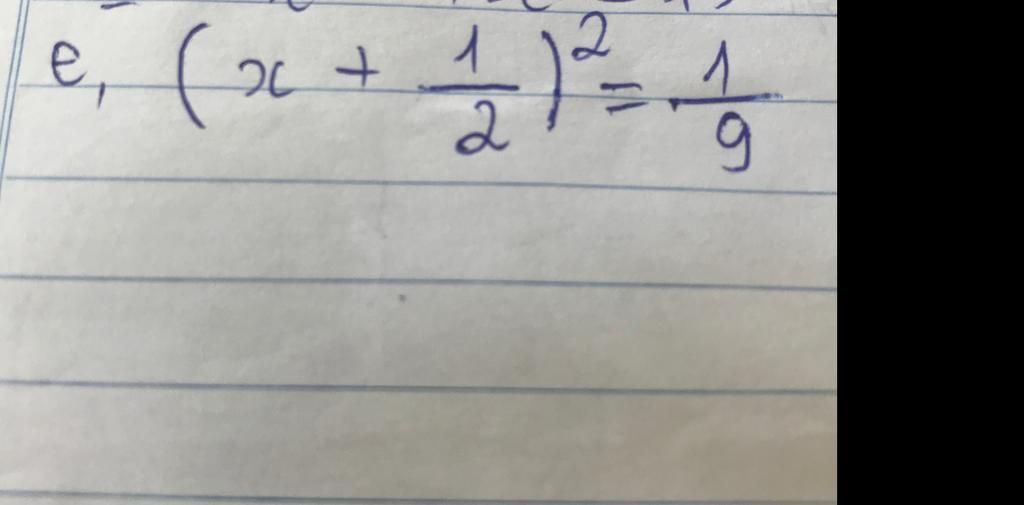 e, (x + 1/2)² = 1/9